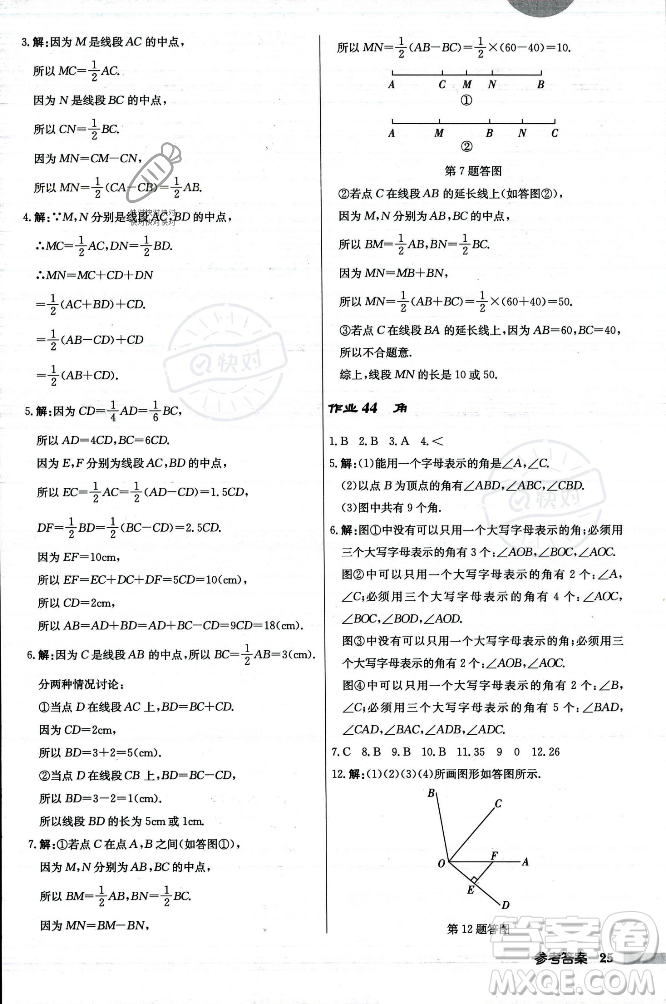 3.解:因为 M 是线段 AC 的中点,
所以 MC=1/2AC.
因为 N 是线段 BC 的中点,
所以 CN=1/2BC.
因为 MN=CM-CN,
所以 MN=1/2(CA-CB)=1/2AB.
4.解:∵M,N 分别是线段 AC,BD 的中点,
快对快对快对
快对快对快对
∴MC=1/2AC,DN=1/2BD.
∴MN=MC+CD+DN
=1/2(AC+BD)+CD
=1/2(AB+CD)+CD
=1/2AB+3/2CD.
5.解:因为 CD=1/4AD=1/6BC,
所以 AD=4CD,BC=6CD.
因为 E,F 分别为线段 AC,BD 的中点,
所以 EC=1/2AC=1/2(AD-CD)=1.5CD,
DF=1/2BD=1/2(BC-CD)=2.5CD.
因为 EF=10cm,
所以 EF=EC+DC+DF=5CD=10cm,
所以 CD=2cm,
所以 AB=AD+BD=AD+BC-CD=9CD=18(cm).
6.解:因为 C 是线段 AB 的中点,所以 BC=1/2AB=3(cm).
分两种情况讨论:
①当点 D 在线段 AC 上时,BD=BC+CD.
因为 CD=2cm,
所以 BD=3+2=5(cm);
②当点 D 在线段 CB 上时,BD=BC-CD.
因为 CD=2cm,
所以 BD=3-2=1(cm).
所以线段 BD 的长为 5cm 或 1cm.
7.解:①若点 C 在点 A,B 之间(如答图①),
因为 M,N 分别为 AB,BC 的中点,
所以 BM=1/2AB,BN=1/2BC.
因为 MN=BM-BN,
所以 MN=1/2(AB-BC)=1/2×(60-40)=10.
A C M N B
①
A M B N C
②
第 7 题答图
②若点 C 在线段 AB 的延长线上(如答图②),
因为 M,N 分别为 AB,BC 的中点,
所以 BM=1/2AB,BN=1/2BC.
因为 MN=MB+BN,
所以 MN=1/2(AB+BC)=1/2×(60+40)=50.
③若点 C 在线段 BA 的延长线上,因为 AB=60,BC=40,
所以不合题意.
综上,线段 MN 的长是 10 或 50.
作业 44 角
1.B 2.B 3.A 4.<
5.解:(1)能用一个字母表示的角是∠A,∠C.
(2)以点 B 为顶点的角是∠ABD,∠ABC,∠DBC.
(3)图中共有 9 个角.
6.解:图①中没有可以只用一个大写字母表示的角;必须用
三个大写字母表示的角有 3 个:∠AOB,∠AOC,∠BOC.
图②中可以只用一个大写字母表示的角有 2 个:∠A,
∠C;必须用三个大写字母表示的角有 4 个:∠AOB,
∠BOC,∠BOD,∠AOD.
图③中可以只用一个大写字母表示的角有 5 个:∠A,
∠B,∠C,∠D,∠E;没有必须用三个大写字母表示的角.
图④中可以只用一个大写字母表示的角有 2 个:∠B,
∠C;必须用三个大写字母表示的角有 5 个:∠BAC,
∠BAD,∠CAD,∠BDA,∠ADC.
7.C 8.B 9.B 10.B 11.35 9 0 12.26
12.解:(1)(2)(3)(4)所画图形如答图所示.
B
C
O F A
E
D
第 12 题答图
快对
快对
快对
答案圈
MXQE.COM
参考答案 25